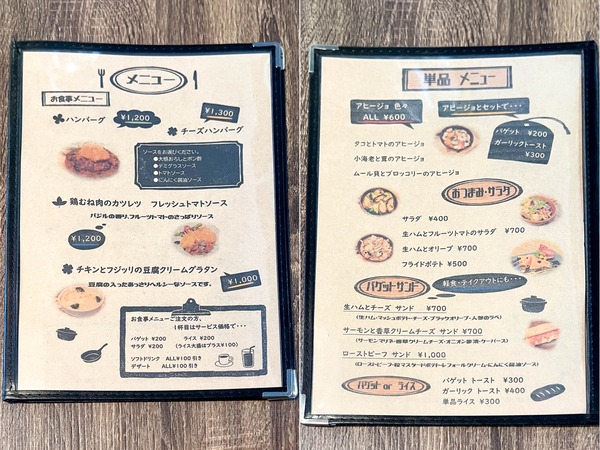 メニュー
お食事メニュー
ハンバーグ
¥1,200
¥1,300
チーズハンバーグ
ソースをお選びください。
●大根おろしとポン酢
●デミグラスソース
●トマトソース
●にんにく醤油ソース
鶏むね肉のカツレツ フレッシュトマトソース
バジルの香り、フルーツトマトのさっぱりソース
¥1,200
チキンとフジッリの豆腐クリームグラタン
豆腐の入ったあっさりヘルシーなソースです。
¥1,000
お食事メニューご注文の方、
1杯目はサービス価格で・・・
バゲット ¥200 ライス ¥200
サラダ ¥200 (ライス大盛はプラス¥100)
ソフトドリンク ALL¥100引き
デザート ALL¥100引き
単品 メニュー
アヒージョ 色々
ALL ¥600
アヒージョとセットで・・・
バゲット ¥200
ガーリックトースト
¥300
タコとトマトのアヒージョ
小海老と茸のアヒージョ
ムール貝とブロッコリーのアヒージョ
おつまみ・サラダ
サラダ ¥400
生ハムとフルーツトマトのサラダ ¥700
生ハムとオリーブ ¥700
フライドポテト ¥500
バゲットサンド
軽食・テイクアウトにも・・・
生ハムとチーズ サンド ¥700
(生ハム・マッシュポテト・チーズ・ブラックオリーブ・人参のラペ)
サーモンと香草クリームチーズ サンド ¥700
(サーモンマリネ・香草クリームチーズ・オニオン・野菜・ケーパー)
ローストビーフ サンド ¥1,000
(ローストビーフ・粒マスタードポテト・フォールクリーム・にんにく醤油ソース)
バゲット or ライス
バゲット トースト ¥300
ガーリック トースト ¥400
単品ライス ¥300